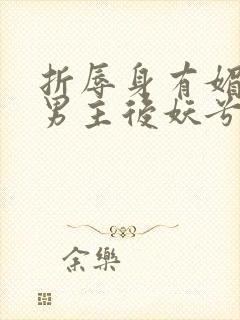 折辱身有媚
男主後妖兮
余樂